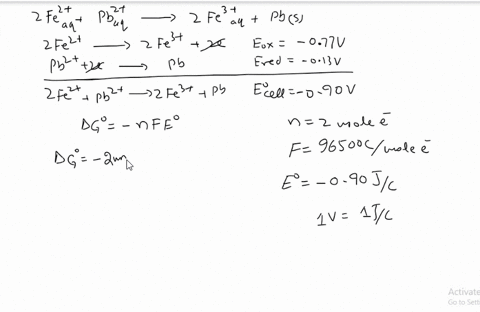 2Fe²⁺aq + Pb²⁺aq ⟶ 2Fe³⁺aq + Pb(s)
2Fe²⁺ ⟶ 2Fe³⁺ + 2e Eox = -0.77V
Pb²⁺ + 2e ⟶ Pb Ered = -0.13V
2Fe²⁺ + Pb²⁺ ⟶ 2Fe³⁺ + Pb E°cell = -0.90V
ΔG° = -nFE°
n = 2 mole e⁻
F = 96500C/mole e⁻
ΔG° = -2m
E° = -0.90J/C
1V = 1J/C
Activate
Go to Setti